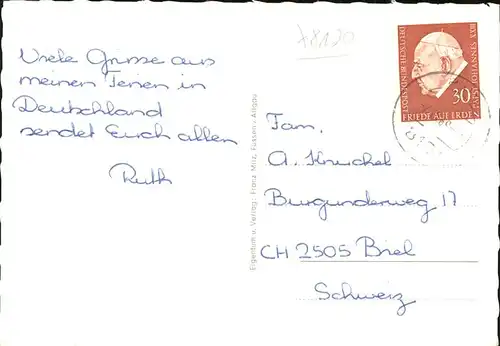 Viele Grüsse aus
meinen Ferien in
Deutschland
sendet Euch allen
Ruth
Eigentum u. Verlag: Franz Milz, Füssen - Allgäu
DEUTSCHE BUNDESPOST
PAPST JOHANNES XXIII
30
FRIEDE AUF ERDEN
Fam.
A. Kruchel
Burgunderweg 17
CH 2505 Biel
Schweiz